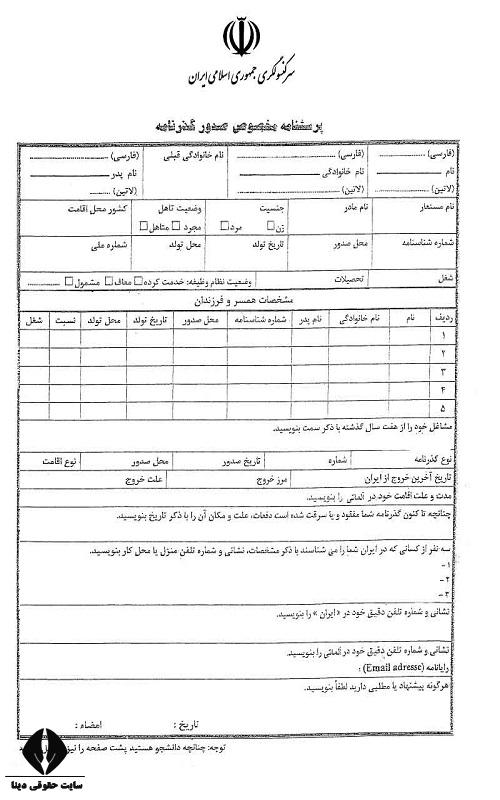 سرکنسولگری جمهوری اسلامی ایران
پرسشنامه مخصوص صدور گذرنامه
(فارسی) (فارسی) نام خانوادگی قبلی (فارسی)
نام نام خانوادگی نام پدر
(لاتین) (لاتین) (لاتین)
نام مستعار نام مادر جنسیت وضعیت تاهل کشور محل اقامت
زن مرد مجرد متاهل
شماره شناسنامه محل صدور تاریخ تولد محل تولد شماره ملی
شغل تحصیلات وضعیت نظام وظیفه: خدمت کرده معاف مشمول
مشخصات همسر و فرزندان
ردیف نام نام خانوادگی نام پدر شماره شناسنامه محل صدور تاریخ تولد محل تولد نسبت شغل
۱
۲
۳
۴
۵
مشاغل خود را از هفت سال گذشته با ذکر سمت بنویسید.
نوع گذرنامه شماره تاریخ صدور محل صدور نوع اقامت
تاریخ آخرین خروج از ایران مرز خروج علت خروج
مدت و علت اقامت خود در آلمانی را بنویسید.
چنانچه تا کنون گذرنامه شما مفقود و یا سرقت شده است دفعات، علت و مکان آن را با ذکر تاریخ بنویسید.
سه نفر از کسانی که در ایران شما را می شناسند با ذکر مشخصات، نشانی و شماره تلفن منزل یا محل کار بنویسید.
۱-
۲-
۳-
نشانی و شماره تلفن دقیق خود در «ایران» را بنویسید.
نشانی و شماره تلفن دقیق خود در آلمانی را بنویسید.
رایانامه (Email adresse) :
هرگونه پیشنهاد یا مطلبی دارید لطفاً بنویسید.
تاریخ : امضاء :
توجه: چنانچه دانشجو هستید پشت صفحه را نیز
سایت حقوقی دینا